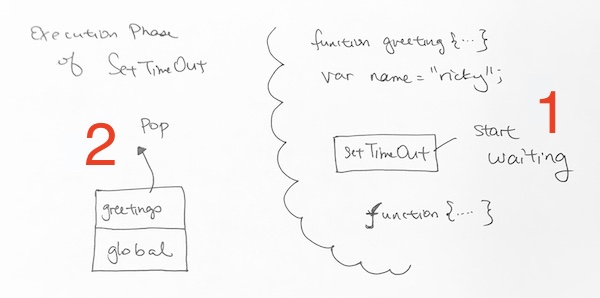 Execution Phase
of SetTimeOut
function greeting {...}
var name = "ricky";
1
start
waiting
setTimeOut
function {.... }
2
Pop
greetings
global